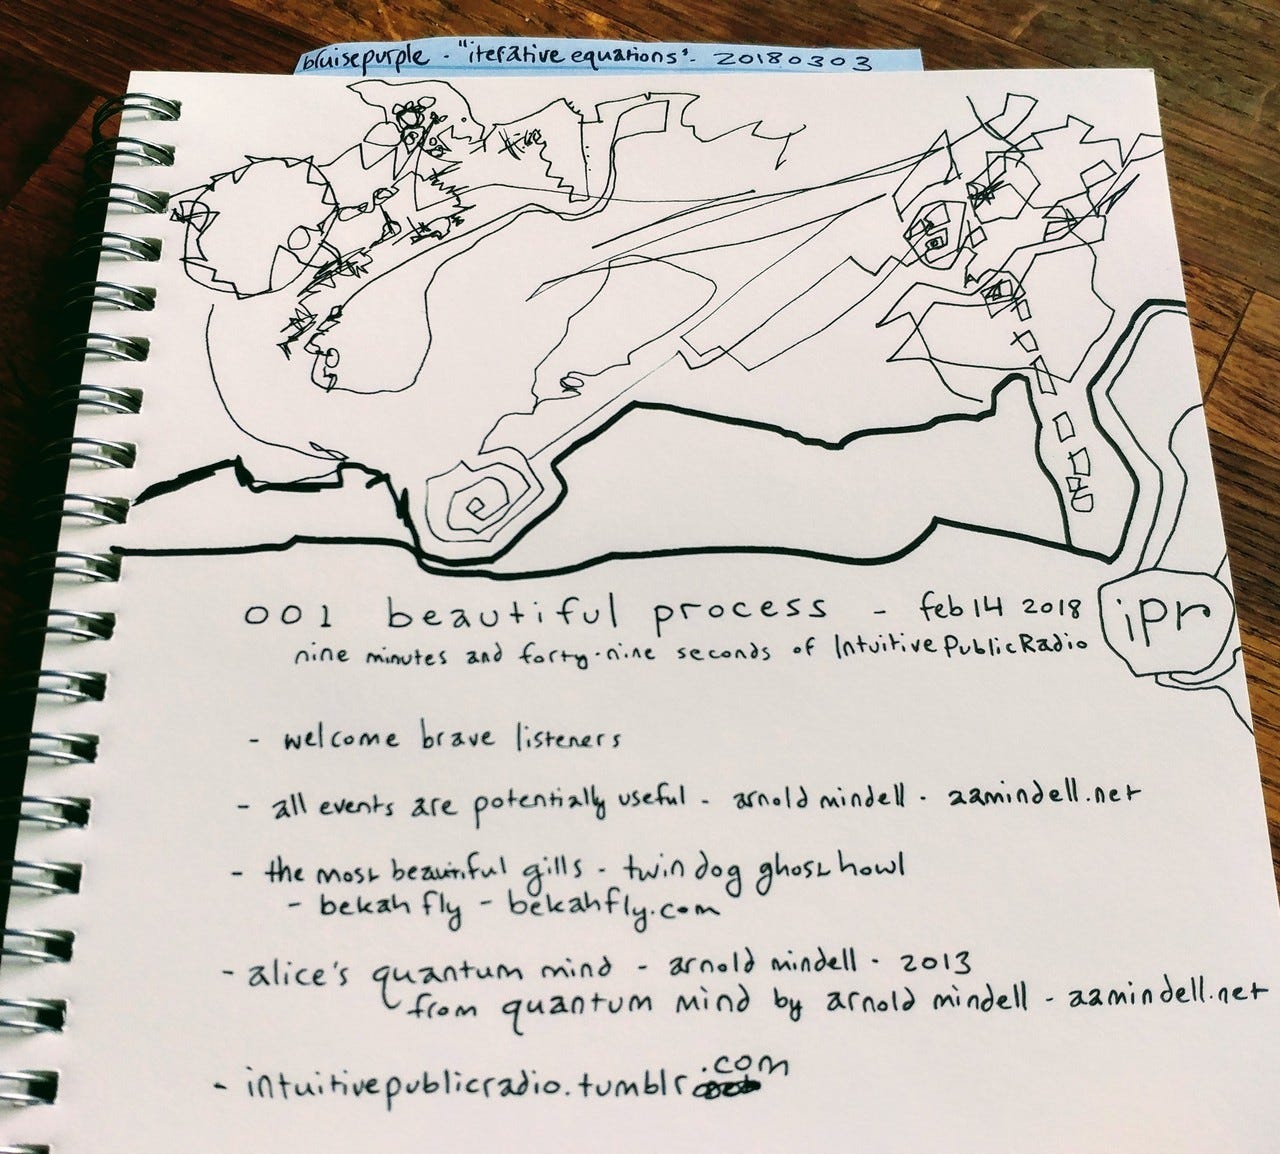 bruisepurple - "iterative equations" - 20180303
001 beautiful process - feb 14 2018
nine minutes and forty-nine seconds of IntuitivePublicRadio
ipr
- welcome brave listeners
- all events are potentially useful - arnold mindell - aamindell.net
- the most beautiful gills - twin dog ghost howl
- bekah fly - bekahfly.com
- alice's quantum mind - arnold mindell - 2013
from quantum mind by arnold mindell - aamindell.net
- intuitivepublicradio.tumblr.com